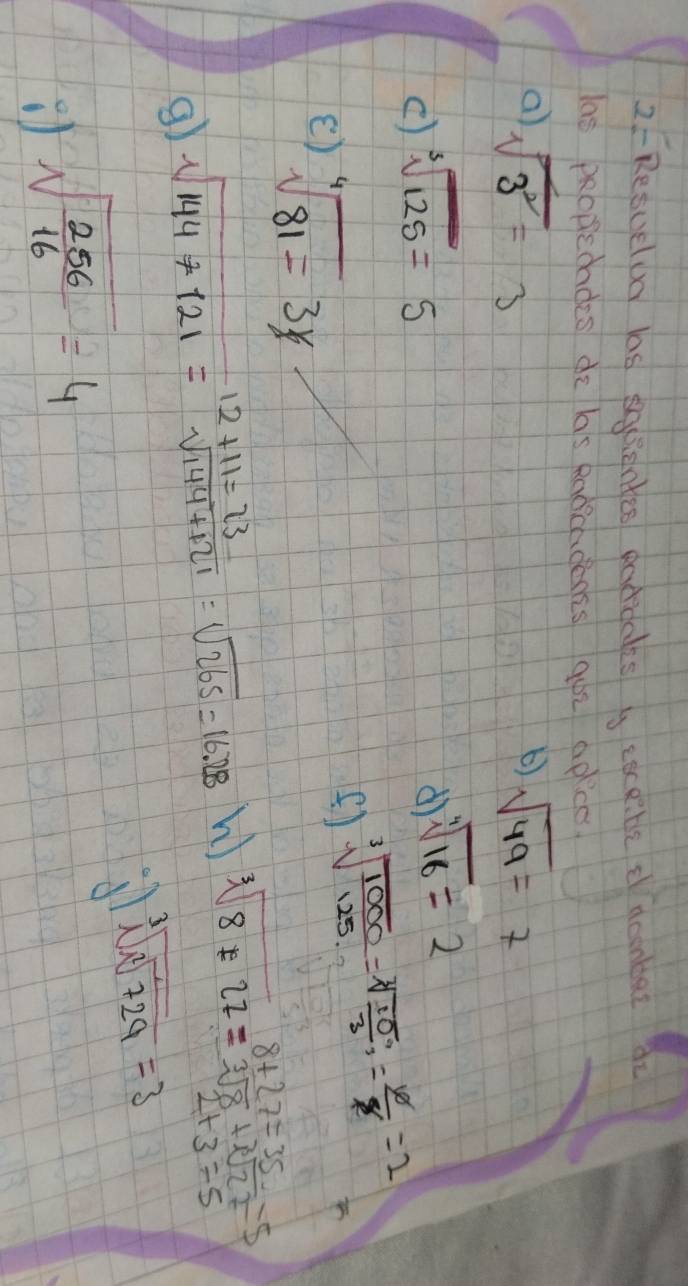 2.- Resuelva las siguientes radicales y escribe el nombre de
las propiedades de las radicaciones que aplica.
a) √3² = 3
b) √49 = 7
c) ³√125 = 5
d) ⁴√16 = 2
E) ⁴√81 = 3
f) ³√1000/125 = = 2
12 + 11 = 23
g) √144 + 121 = √144 + 121 = √265 = 16.28
8 + 27 = 35
h) ³√8 + 27 = ³√8 + ³√27 = 5
2 + 3 = 5
i) √256/16 = 4
j) ³√²√729 = 3